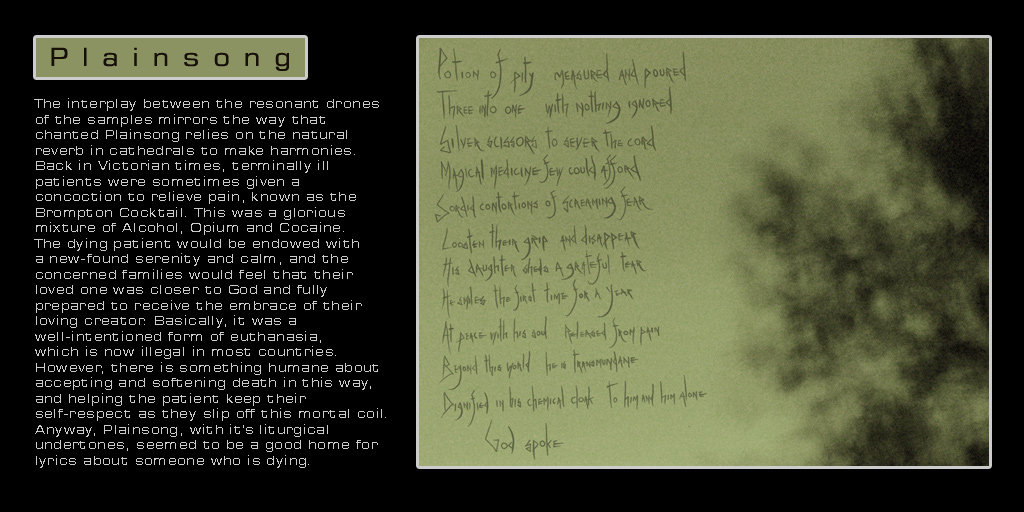 Plainsong
The interplay between the resonant drones
of the samples mirrors the way that
chanted Plainsong relies on the natural
reverb in cathedrals to make harmonies.
Back in Victorian times, terminally ill
patients were sometimes given a
concoction to relieve pain, known as the
Brompton Cocktail. This was a glorious
mixture of Alcohol, Opium and Cocaine.
The dying patient would be endowed with
a new-found serenity and calm, and the
concerned families would feel that their
loved one was closer to God and fully
prepared to receive the embrace of their
loving creator. Basically, it was a
well-intentioned form of euthanasia,
which is now illegal in most countries.
However, there is something humane about
accepting and softening death in this way,
and helping the patient keep their
self-respect as they slip off this mortal coil.
Anyway, Plainsong, with it's liturgical
undertones, seemed to be a good home for
lyrics about someone who is dying.
Potion of pity measured and poured
Three into one with nothing ignored
Silver scissors to sever the cord
Magical medicine few could afford
Sordid contortions of screaming fear
Loosten their grip and disappear
His daughter sheds a grateful tear
He smiles the first time for a year
At peace with his soul Released from pain
Beyond this world he is transmundane
Dignified in his chemical cloak To him and him alone
God spoke